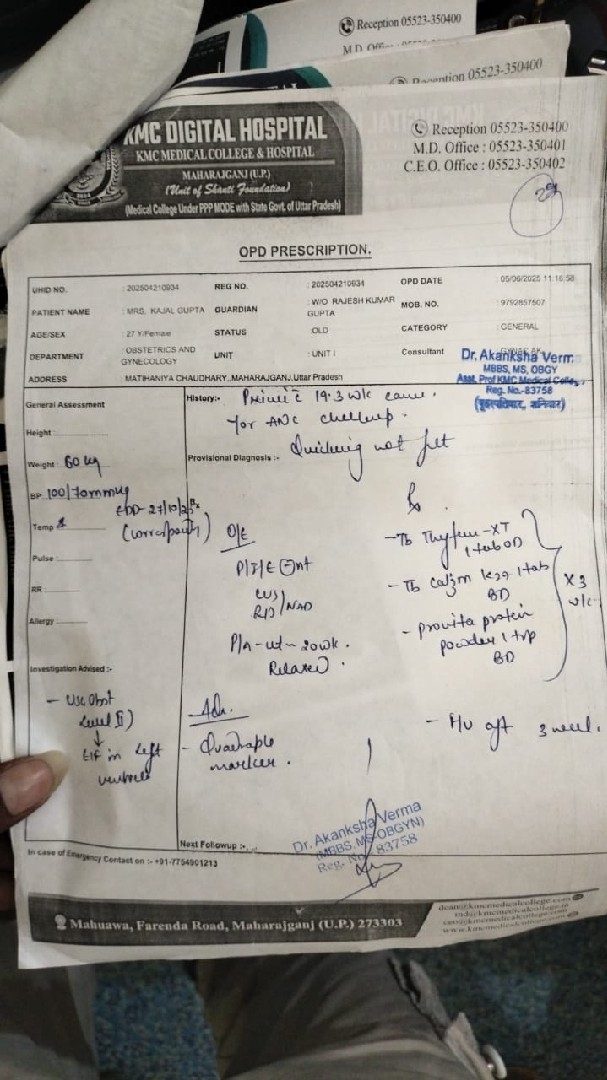 Reception 05523-350400
Reception 05523-350400
KMC DIGITAL HOSPITAL
KMC MEDICAL COLLEGE & HOSPITAL
MAHARAJGANJ (U.P.)
(Unit of Shanti Foundation)
(Medical College Under PPP MODE with State Govt. of Uttar Pradesh)
Reception 05523-350400
M.D. Office : 05523-350401
C.E.O. Office : 05523-350402
OPD PRESCRIPTION.
UHID NO. : 202504210934 REG NO. : 202504210934 OPD DATE : 05/06/2025 11:16:58
PATIENT NAME : MRS. KAJAL GUPTA GUARDIAN : W/O RAJESH KUMAR GUPTA MOB. NO. : 9792857607
AGE/SEX : 27 Y/Female STATUS : OLD CATEGORY : GENERAL
DEPARTMENT : OBSTETRICS AND GYNECOLOGY UNIT : UNIT I Consultant
Dr. Akanksha Verm
MBBS, MS, OBGY
Asst. Prof KMC Medical Colleg
Reg. No.-83758
(बृहस्पतिवार, शनिवार)
ADDRESS MATIHANIYA CHAUDHARY, MAHARAJGANJ, Uttar Pradesh
General Assessment
History:- Primi c 19.3 wk came
for ANC checkup.
Height:
Quickening not felt
Weight: 60 kg
Provisional Diagnosis :-
BP 100/70mmHg
EDD- 27/10/25
Temp
Pulse:
RR
Allergy:
O/E
CVS
RS/NAD
P/A - ut ~ 20wk.
Relaxed.
Rx
1 tab OD
1 tab
BD
- provita protein
powder 1 tsp
BD
x 3
Investigation Advised :-
Level II)
↓
EIF in left
ventricle
Adv.
- Quadruple
marker.
- F/U aft 3 week.
Next Followup :-
Dr. Akanksha Verma
(MBBS, MS-OBGYN)
Reg. No. 83758
In case of Emergency Contact on :- +91-7754001213
Mahuawa, Farenda Road, Maharajganj (U.P.) 273303